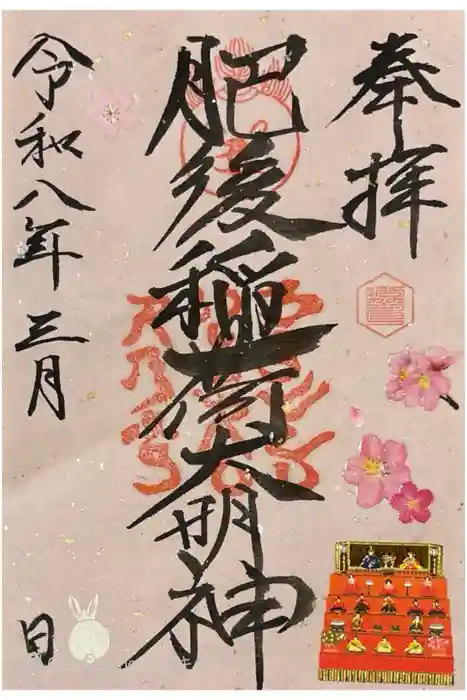 奉拝
肥後稲荷大明神
令和八年三月　日